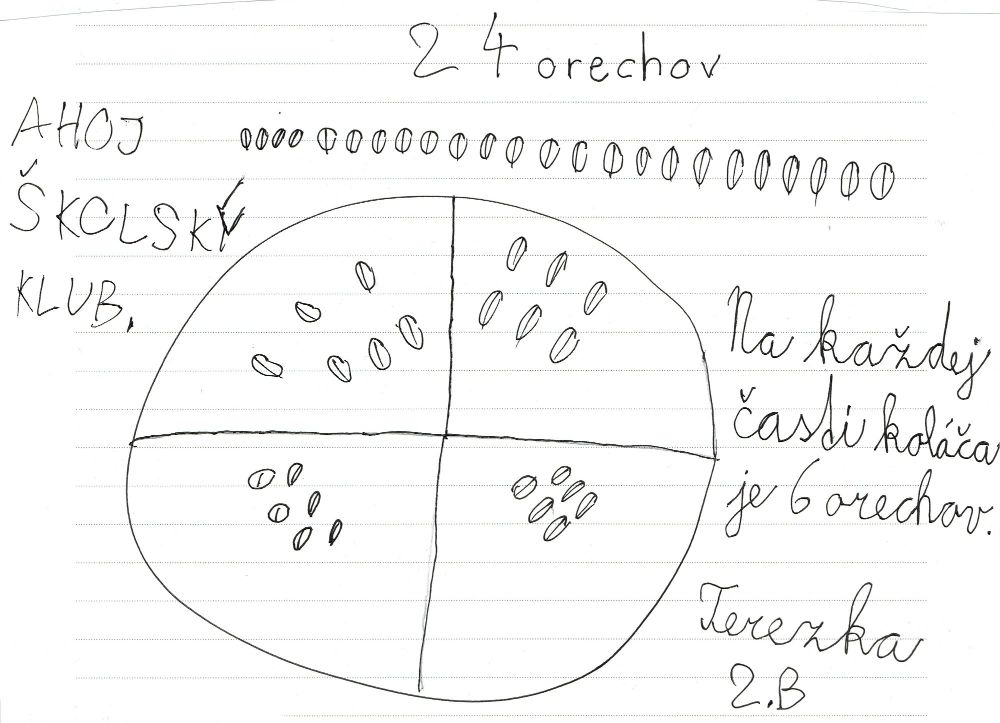 24 orechov
AHOJ
ŠKOLSKÝ
KLUB.
Na každej
časti koláča
je 6 orechov.
Terezka
2.B